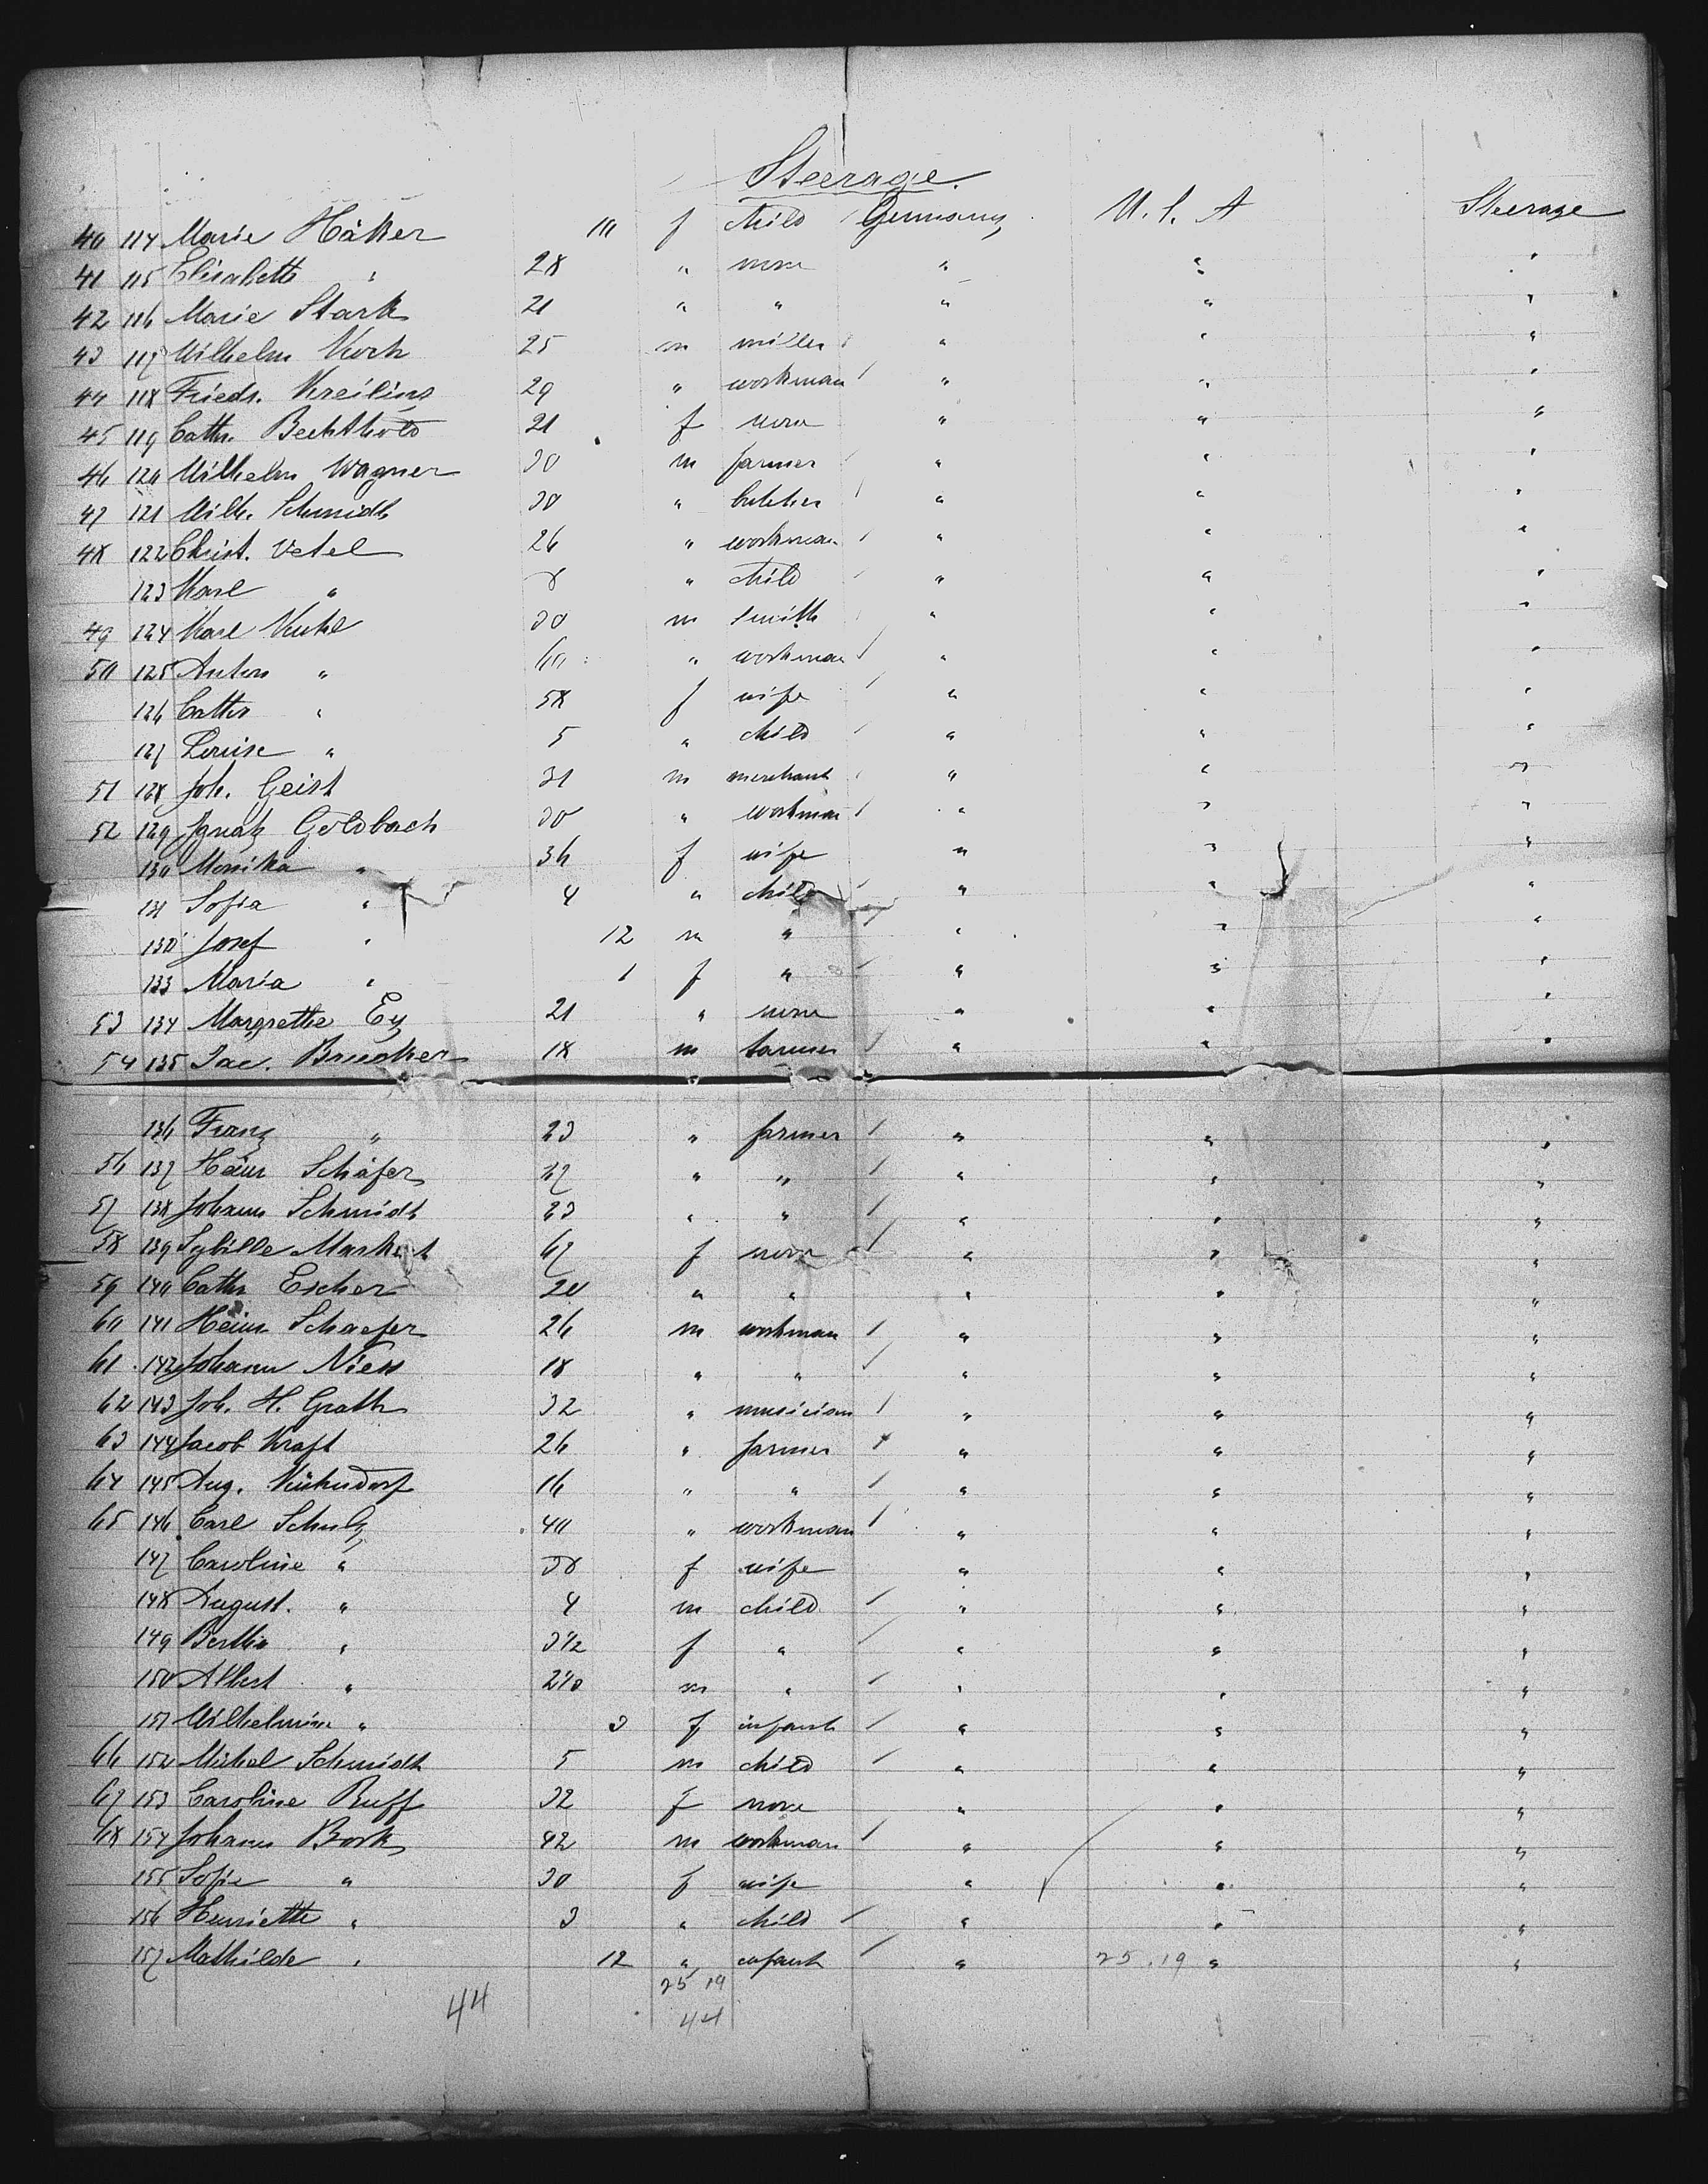 Steerage.
40 114 Marie Häker 10 f child Germany U. S. A Steerage
41 115 Elisabeth " 28 " none " " "
42 116 Marie Stark 21 " " " " "
43 117 Wilhelm Koch 25 m miller " " "
44 118 Friedr. Kreiling 29 " workman " " "
45 119 Cathr. Bechthold 21 f none " " "
46 120 Wilhelm Wagner 30 m farmer " " "
47 121 Wilh. Schmidt 30 " butcher " " "
48 122 Christ. Vetel 26 " workman " " "
123 Karl " 8 " child " " "
49 124 Karl 30 m smith " " "
50 125 Anton " 60 " workman " " "
126 Cathr " 58 f wife " " "
127 Louise " 5 " child " " "
51 128 Joh. Geist 31 m merchant " " "
52 129 Ignatz Goldbach 30 " workman " " "
130 Monika " 36 f wife " " "
131 Sofia " 4 " child " " "
132 Josef " 12 m " " " "
133 Maria " 1 f " " " "
53 134 Margrethe Ey 21 " none " " "
54 135 Jac. Brucker 18 m farmer " " "
136 Franz " 23 " farmer " " "
56 137 Heinr Schäfer 27 " " " " "
57 138 Johann Schmidt 23 " " " " "
58 139 Sybille Markert 67 f none " " "
59 140 Cathr Escher 20 " " " " "
60 141 Heinr Schaefer 26 m workman " " "
61 142 Johann Niess 18 " " " " "
62 143 Joh. H. Grath 32 " musician " " "
63 144 Jacob Kraft 26 " farmer " " "
64 145 Aug. Kuhndorf 16 " " " " "
65 146 Carl Schulz 40 " workman " " "
147 Caroline " 38 f wife " " "
148 August. " 4 m child " " "
149 Bertha " 3 1/2 f " " " "
150 Albert " m " " " "
151 Wilhelmine " 3 f infant " " "
66 152 Michel Schmidt 5 m child " " "
67 153 Caroline Ruff 32 f none " " "
68 154 Johann Bork 42 m workman " " "
155 Sofie " 30 f wife " " "
156 Henriette " 3 " child " " "
157 Mathilde " 12 " infant " 25.19 " "
25 19
44 44